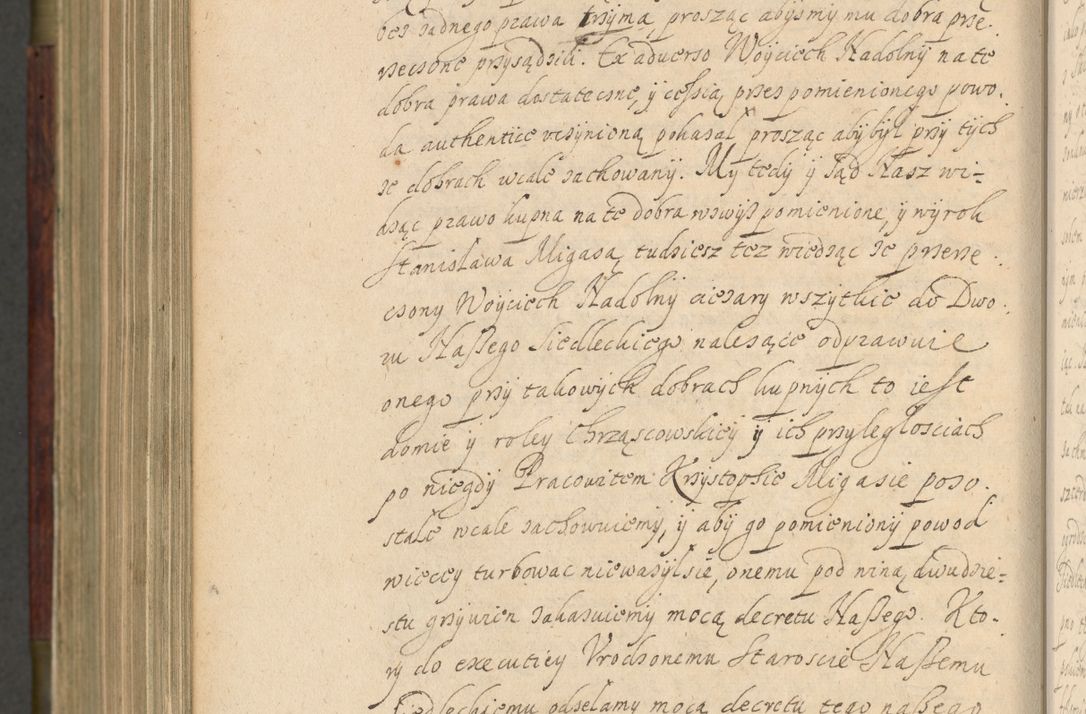 bez żadnego prawa trzyma, prosząc abyśmy mu dobra prze-
rzeczone przysądzili. Ex adverso Woyciech Nadolny na te
dobra prawa dostateczne, y cessią przez pomienionego powo-
da authentice uczynioną pokazał prosząc aby był przy tych
że dobrach wcale zachowany. My tedy y Sąd Nasz wi-
dząc prawo kupna na te dobra wzwyż pomienione, y wyrok
Stanisława Migasa, tudziesz tez wiedząc że przerze-
czony Woyciech Nadolny ciężary wszytkie do Dwo-
ru Naszego Siedleckiego należące odprawuie
onego przy takowych dobrach kupnych to iest
domie y roley Chrząscowskiey y ich przyległościach
po niegdy Pracowitem Krzysztophie Migasie pozo-
stałe wcale zachowuiemy, y aby go pomieniony powod
więcey turbować nieważył sie, onemu pod winą dwudzie-
stu grzywien zakazuiemy mocą decretu Naszego. Kto-
ry do executiey Urodzonemu Staroście Naszemu
Siedleckiemu odsełamy mocą decretu tego naszego